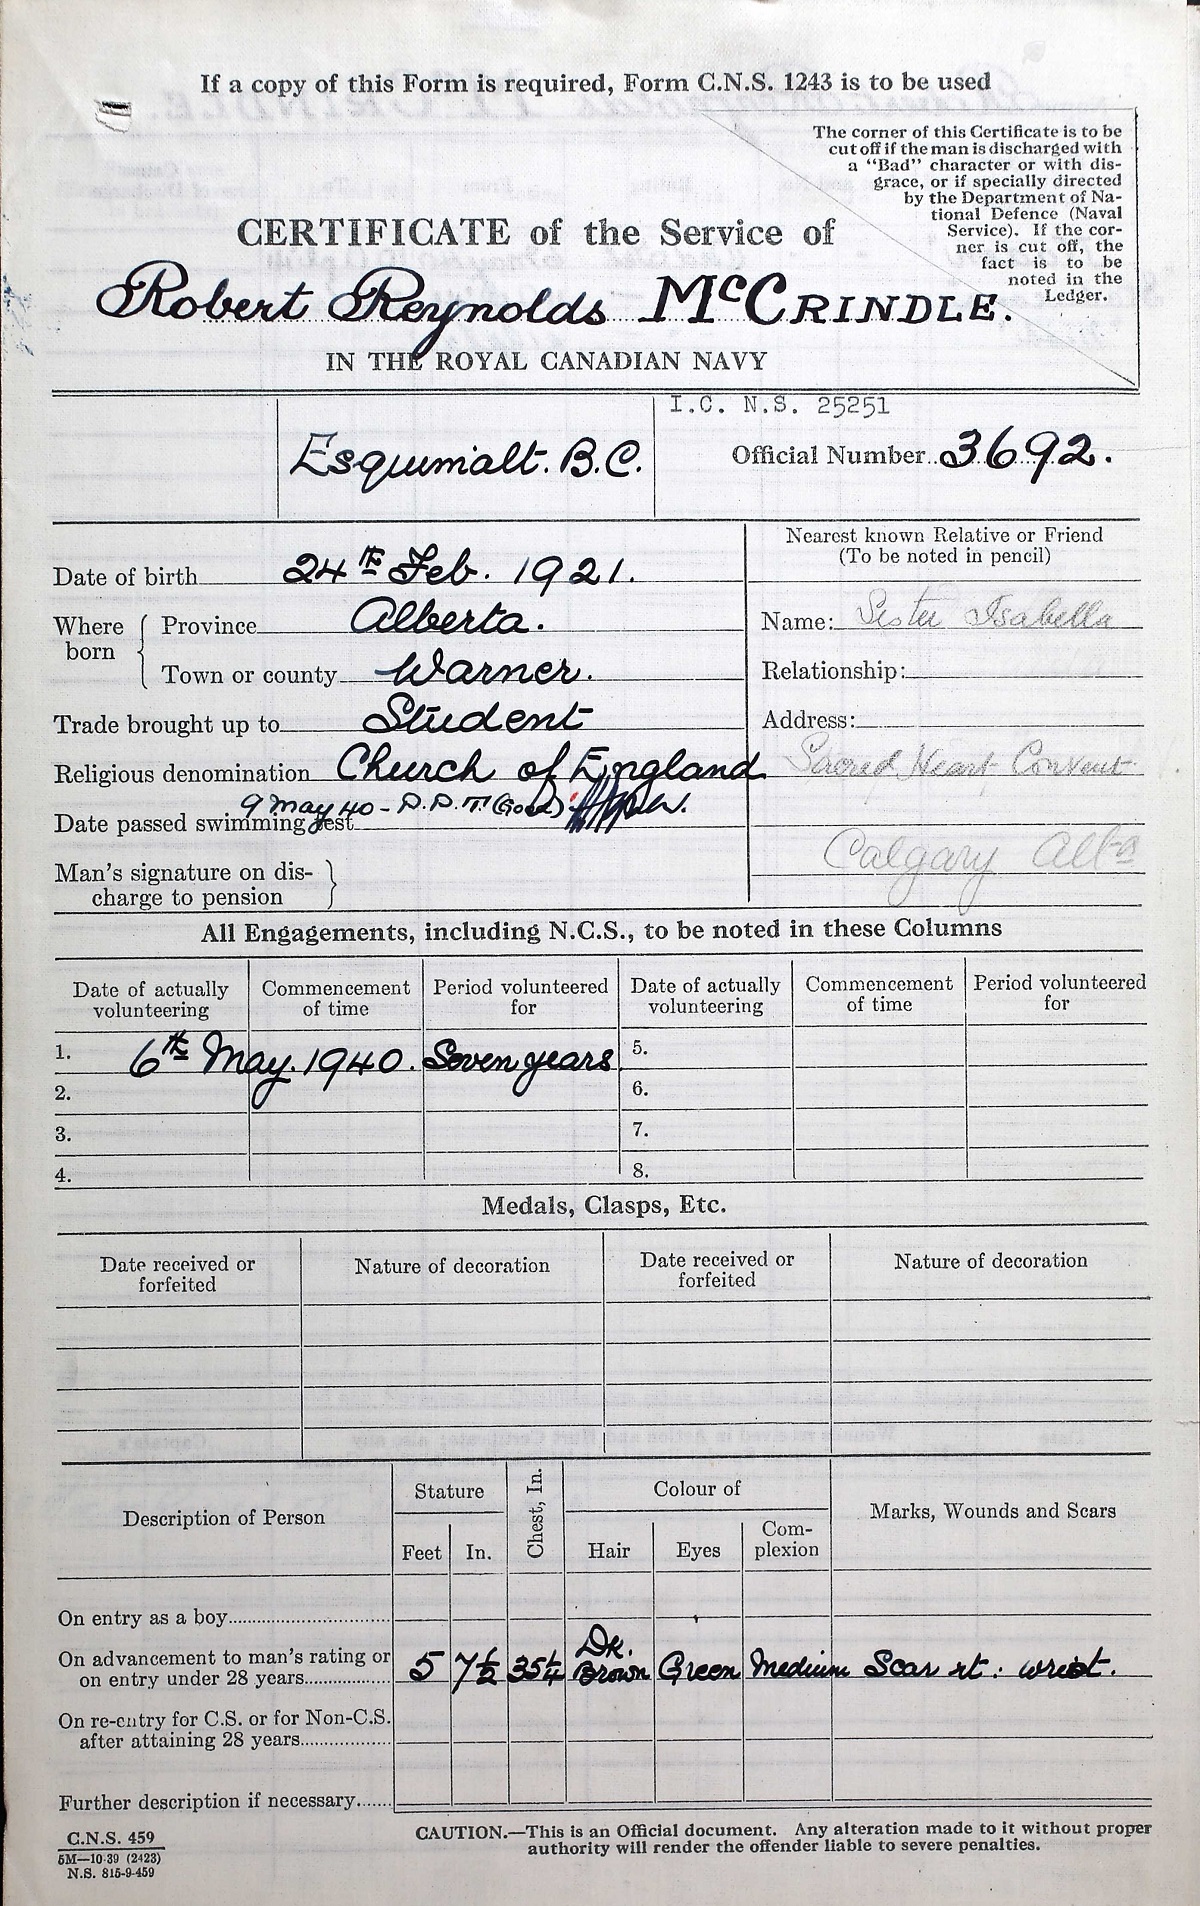 If a copy of this Form is required, Form C.N.S. 1243 is to be used
The corner of this Certificate is to be
cut off if the man is discharged with
a "Bad" character or with dis-
grace, or if specially directed
by the Department of Na-
tional Defence (Naval
Service). If the cor-
ner is cut off, the
fact is to be
noted in the
Ledger.
CERTIFICATE of the Service of
Robert Reynolds McCRINDLE.
IN THE ROYAL CANADIAN NAVY
I.C. N.S. 25251
Esquimalt. B.C.
Official Number 3692.
Nearest known Relative or Friend
(To be noted in pencil)
Date of birth 24TH Feb. 1921.
Where born
Province Alberta.
Name: Sister Isabella
Town or county Warner.
Relationship:
Trade brought up to Student
Address:
Religious denomination Church of England
Sacred Heart Convent
9 May 40 - P.P.T. (Good)
Date passed swimming test
Calgary Alta
Man's signature on dis-
charge to pension
All Engagements, including N.C.S., to be noted in these Columns
Date of actually volunteering Commencement of time Period volunteered for Date of actually volunteering Commencement of time Period volunteered for
1. 6th May. 1940. Seven years. 5.
2. 6.
3. 7.
4. 8.
Medals, Clasps, Etc.
Date received or forfeited Nature of decoration Date received or forfeited Nature of decoration
Description of Person Stature Chest, In. Colour of Marks, Wounds and Scars
Feet In. Hair Eyes Com-plexion
On entry as a boy
On advancement to man's rating or
on entry under 28 years 5 7½ 35¼ Dk. Brown Green Medium Scar rt. wrist.
On re-entry for C.S. or for Non-C.S.
after attaining 28 years
Further description if necessary
C.N.S. 459
5M—10-39 (2423)
N.S. 815-9-459
CAUTION.—This is an Official document. Any alteration made to it without proper
authority will render the offender liable to severe penalties.